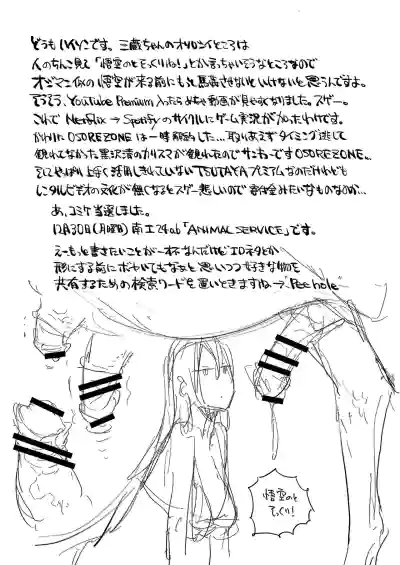 どうもハイソンです。三蔵ちゃんのオソロシイところは
人のちんこ見て「悟空のとそっくりね!」とか言っちゃいそうなところなので
オジマン似の悟空が来る前にもっと馬轟させないといけないと思うんですよ。
そうそう、YouTube Premium入ったらめちゃ動画が見やすくなりました。スゲー。
これで Netflix → Spotify のサイクルにゲーム実況がかわったわけです。
かわりに OSOREZONE は一時解約した…取りあえずタイミング逃して
観れてなかった黒沢清のカリスマが観れたのでサンキューです OSOREZONE…
そしてやっぱ上手く活用しきれていない TSUTAYA プレミアムなのだけれども
レンタルビデオの文化が無くなるとスゲー悲しいので寄付金みたいなものなのか…
あ、コミケ当選しました。
12月30日(月曜日)南エ24ab「ANIMAL SERVICE」です。
えーもっと書きたいことが一杯なんだけどエロネタとか
形にする前にボヤいてもなぁと思いつつ好きな物を
共有するための検索ワードを置いときますね→ Pee hole
悟空のと
そっくり!